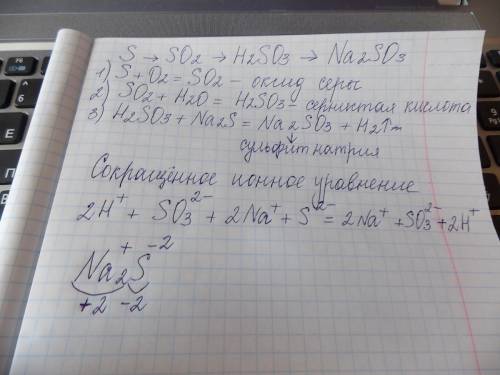 S → SO2 → H2SO3 → Na2SO3
1) S + O2 = SO2 – оксид серы
2) SO2 + H2O = H2SO3 – сернистая кислота
3) H2SO3 + Na2S = Na2SO3 + H2↑
↓
сульфит натрия
Сокращённое ионное уравнение
2H⁺ + SO3²⁻ + 2Na⁺ + S²⁻ = 2Na⁺ + SO3²⁻ + 2H⁺
+ -2
Na2S
+2 -2